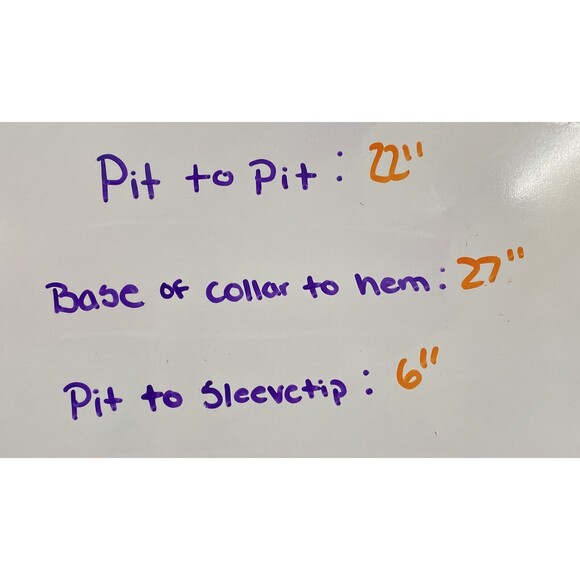 Pit to Pit: 22"
Base of collar to hem: 27"
Pit to Sleevetip: 6"